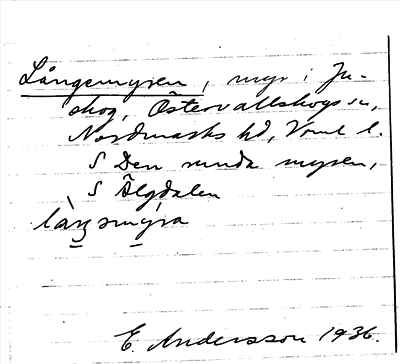 Långemyren, myr i Ju-
skog, Östervallskogs sn,
Nordmarks hd, Vrml l.
S Den runda myren,
S Älgdalen
làŋsmyra
E. Andersson 1936.